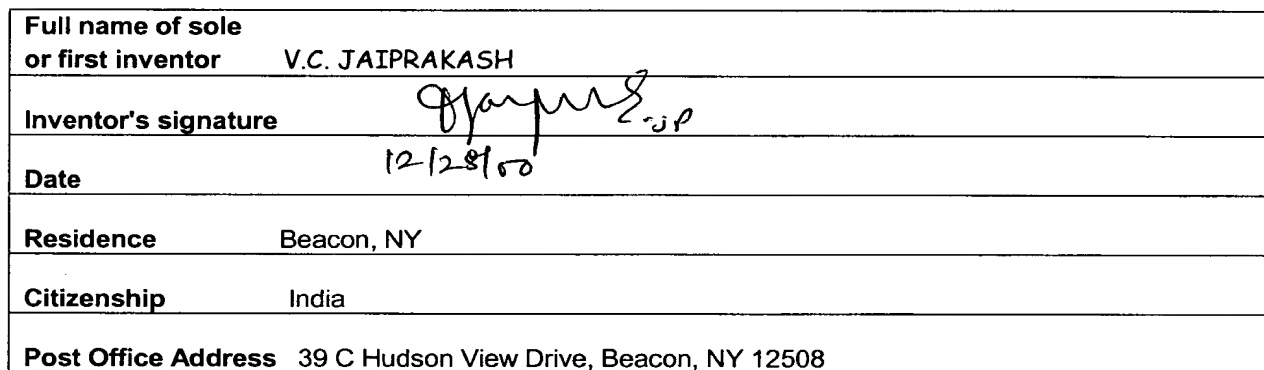 Full name of sole
or first inventor V.C. JAIPRAKASH
Inventor's signature
12/28/00
Date
Residence Beacon, NY
Citizenship India
Post Office Address 39 C Hudson View Drive, Beacon, NY 12508